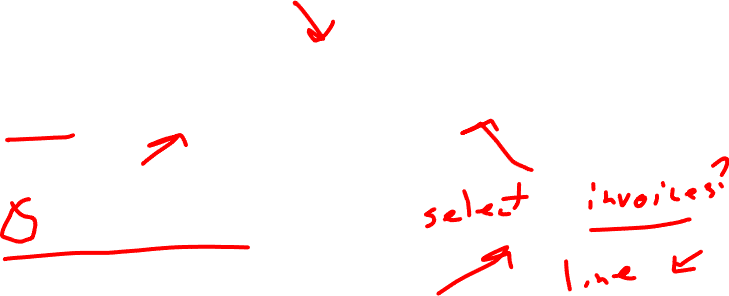 select invoices?
line